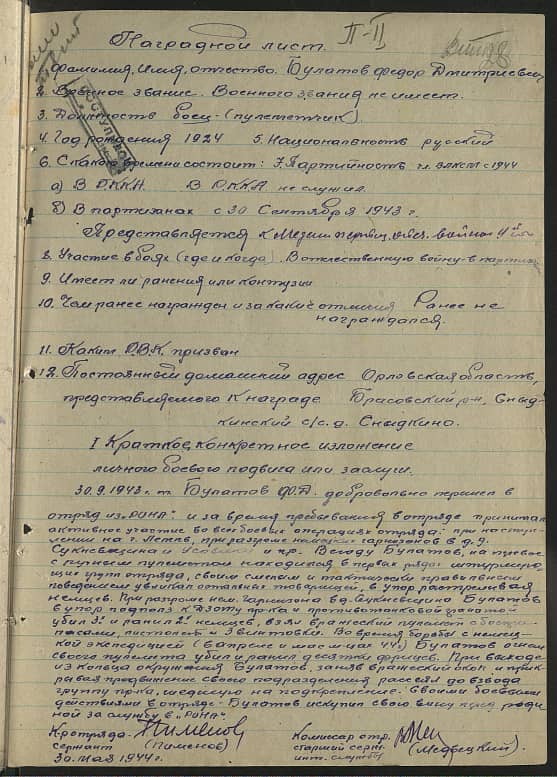 П-11
Наградной лист.
Фамилия, имя, отчество. Булатов Федор Дмитриевич
2. Военное звание. Военного звания не имеет.
3. Должность боец-(пулеметчик).
4. Год рождения 1924 5. Национальность русский
6. С какого времени состоит: 7. Партийность чл. ВЛКСМ с 1944
а) В РККА В РККА не служил
б) В партизанах с 30 Сентября 1943 г.
Представляется к
8. Участие в боях (где и когда). В отечественную войну-в
9. Имеет ли ранения или контузии
10. Чем ранее награжден и за какие отличия Ранее не
награждался.
11. Каким РВК призван
12. Постоянный домашний адрес Орловская область,
представляемого к награде Брасовский р-н, Сныт-
кинский с/с. д. Сныткино.
I Краткое, конкретное изложение
личного боевого подвига или заслуги.
30.9.1943 г. т. Булатов Ф.Д. добровольно перешел в
отряд из "РОНА" и за время пребывания в отряде принимал
активное участие во всех боевых операциях отряда: при наступ-
лении на г. Лепель, при разгроме немецких гарнизонов в д.д.
и др. Всюду Булатов, на
с ручным пулеметом находился в первых рядах штурмую-
щих групп отряда, своим смелым и тактически правильным
поведением увлекал остальных товарищей, в упор расстреливая
немцев. При разгроме нем. гарнизона в д. Булатов
в упор подполз к Дзоту пр-ка и противотанковой гранатой
убил 3х и ранил 2х немцев, взял вражеский пулемет с боепри-
пасами, пистолет и 3 винтовки. Во время борьбы с немец-
кой экспедицией (в апреле и мае м-цах 44г) Булатов огнем
своего пулемета убил и ранил десятки фрицев. При выходе
из кольца окружения Булатов, заняв вражеский окоп и прик-
рывая продвижение своего подразделения рассеял до взвода
группу пр-ка, шедшую на подкрепление. Своими боевыми
действиями в отряде Булатов искупил свою вину перед роди-
ной за службу в "РОНА".
К-р отряда Комиссар отр.
сержант (Пименов) старший серж.
30. мая 1944 г. инт. службы (Медвецкий).